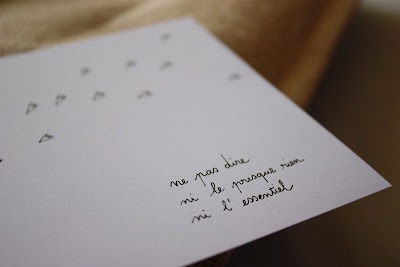 ne pas dire
ni le presque rien
ni l' essentiel